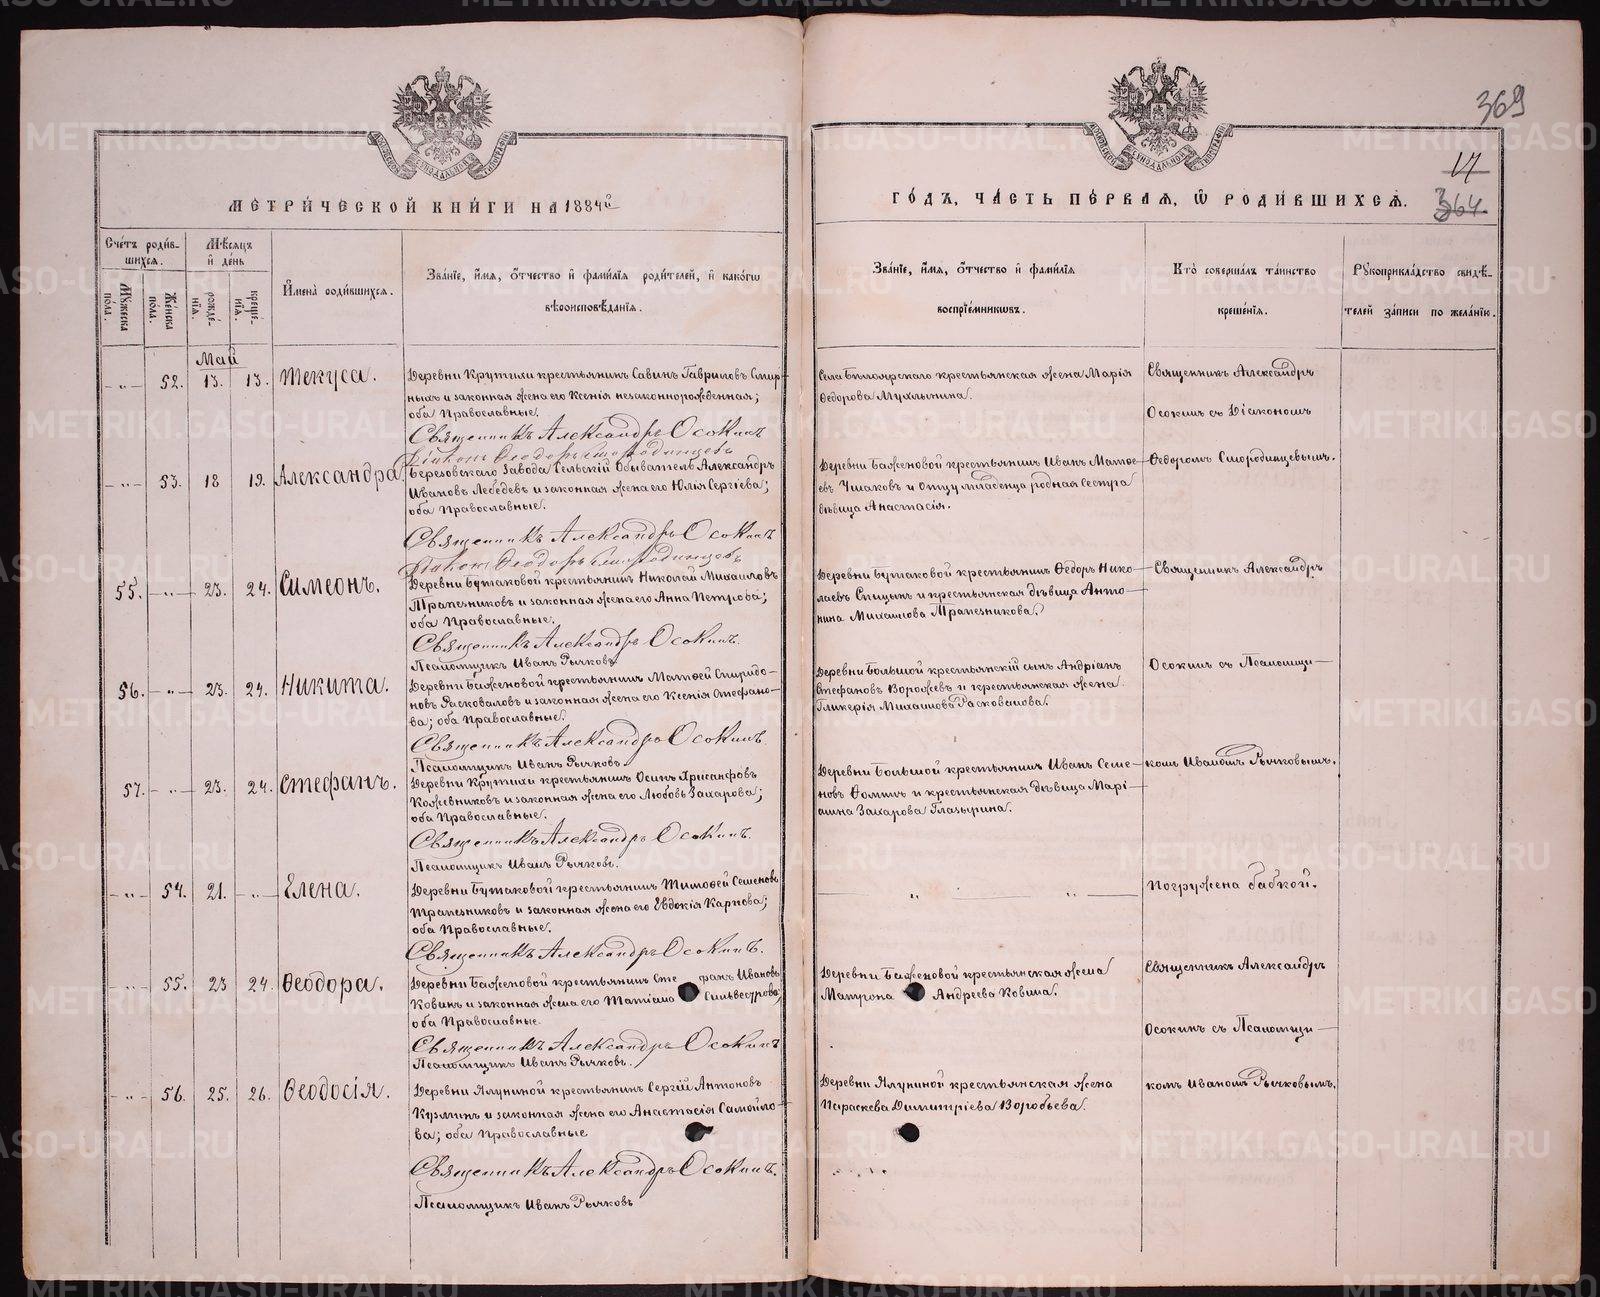 369
17
364
МЕТРИЧЕСКОЙ КНИГИ НА 1884й
ГОДЪ, ЧАСТЬ ПЕРВАЯ, Ѿ РОДИВШИХСЯ.
Счетъ родившихся.
Мужеска пола.
Женска пола.
Мѣсяцъ и день
рожденія.
крещенія.
Имена родившихся.
Званіе, имя, отчество и фамилія родителей, и какогѡ
вѣроисповѣданія.
Званіе, имя, отчество и фамилія
воспріемниковъ.
Кто совершалъ таинство
крещенія.
Рукоприкладство свидѣ-
телей записи по желанію.
Май
-„- 52. 13. 13. Текуса.
Деревни Крутихи крестьянинъ Савинъ Гавриловъ Смир-
ныхъ и законная жена его Ксенія незаконнорожденная;
оба Православные.
Священникъ Александръ Осокинъ
Діаконъ Ѳеодоръ Смородинцевъ
Села Бѣлоярскаго крестьянская жена Марія
Ѳедорова Мухлынина.
Священникъ Александръ
Осокинъ съ Діакономъ
-„- 53. 18 19. Александра.
Березовскаго Завода Сельскій Обыватель Александръ
Ивановъ Лебедевъ и законная жена его Юлія Сергіева;
оба Православные.
Священникъ Александръ Осокинъ
Діаконъ Ѳеодоръ Смородинцевъ
Деревни Баженовой крестьянинъ Иванъ Матѳе-
евъ Ушаковъ и Отцу младенца родная Сестра
дѣвица Анастасія.
Ѳедоромъ Смородинцевымъ.
55. -„- 23. 24. Симеонъ.
Деревни Бутаковой крестьянинъ Николай Михаиловъ
Трапезниковъ и законная жена его Анна Петрова;
оба Православные.
Священникъ Александръ Осокинъ.
Псаломщикъ Иванъ Рычковъ
Деревни Бутаковой крестьянинъ Ѳедоръ Нико-
лаевъ Спицынъ и крестьянская дѣвица Анто-
нина Михаилова Трапезникова.
Священникъ Александръ
56. -„- 23. 24. Никита.
Деревни Баженовой крестьянинъ Матѳей Спиридо-
новъ Расковаловъ и законная жена его Ксенія Стефано-
ва; оба Православные.
Священникъ Александръ Осокинъ.
Псаломщикъ Иванъ Рычковъ.
Деревни Большой крестьянскій сынъ Андріанъ
Стефановъ Ворожевъ и крестьянская жена
Гликерія Михаилова Расковалова.
Осокинъ съ Псаломщи-
57. -„- 23. 24. Стефанъ.
Деревни Крутихи крестьянинъ Осипъ Хрисанфовъ
Кожевниковъ и законная жена его Любовь Захарова;
оба Православные.
Священникъ Александръ Осокинъ.
Псаломщикъ Иванъ Рычковъ.
Деревни Большой крестьянинъ Иванъ Семе-
новъ Ѳоминъ и крестьянская дѣвица Марі-
анна Захарова Глазырина.
комъ Иваномъ Рычковымъ.
-„- 54. 21. -„- Елена.
Деревни Бутаковой крестьянинъ Тимоѳей Семеновъ
Трапезниковъ и законная жена его Евдокія Карпова;
оба Православные.
Священникъ Александръ Осокинъ.
„ „
Погружена бабкой.
-„- 55. 23 24. Ѳеодора.
Деревни Баженовой крестьянинъ Стефанъ Ивановъ
Ковинъ и законная жена его Татіана Сильвестрова;
оба Православные.
Священникъ Александръ Осокинъ
Псаломщикъ Иванъ Рычковъ.
Деревни Баженовой крестьянская жена
Матрона Андреева Ковина.
Священникъ Александръ
Осокинъ съ Псаломщи-
-„- 56. 25. 26. Ѳеодосія.
Деревни Ялуниной крестьянинъ Сергій Антоновъ
Кузминъ и законная жена его Анастасія Самойло-
ва; оба Православные
Священникъ Александръ Осокинъ.
Псаломщикъ Иванъ Рычковъ
Деревни Ялуниной крестьянская жена
Параскева Димитріева Воробьева.
комъ Иваномъ Рычковымъ.
METRIKI.GASO-URAL.RU